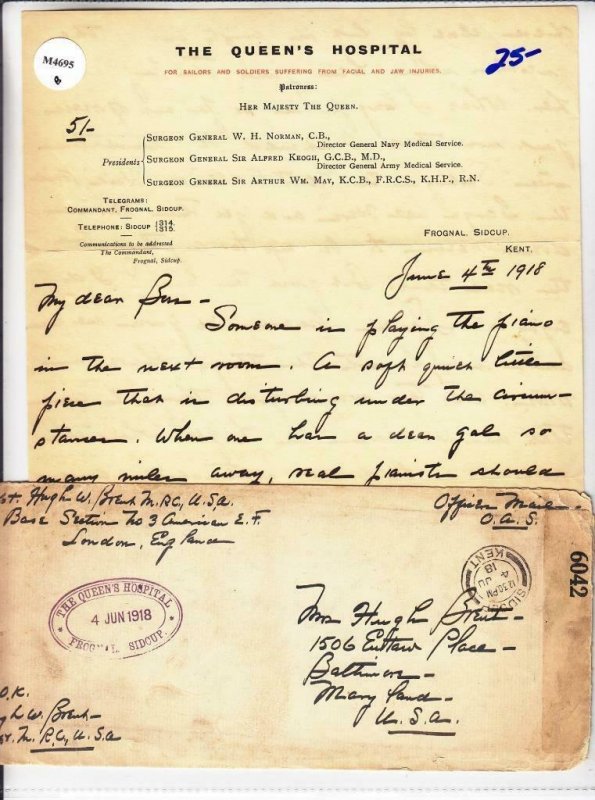 M4695
8
THE QUEEN'S HOSPITAL
25-
FOR SAILORS AND SOLDIERS SUFFERING FROM FACIAL AND JAW INJURIES.
Patroness:
HER MAJESTY THE QUEEN.
51-
Presidents
SURGEON GENERAL W. H. NORMAN, C.B.,
Director General Navy Medical Service.
SURGEON GENERAL SIR ALFRED KEOGH, G.C.B., M.D.,
Director General Army Medical Service.
SURGEON GENERAL SIR ARTHUR WM. MAY, K.C.B., F.R.C.S., K.H.P., R.N.
TELEGRAMS:
COMMANDANT, FROGNAL, SIDCUP.
TELEPHONE: SIDCUP 314. 315.
Communications to be addressed
The Commandant,
Frognal, Sidcup.
FROGNAL, SIDCUP.
KENT.
June 4th 1918
My dear
Someone is playing the piano
in the next room. A soft quick little
piece that is disturbing under the circum-
stances. When one has a dear gal so
many miles away, real pianists should
Hugh W. Brent M.R.C., U.S.A.
Base Section No 3 American E.F.
London, England
Officers Mail.
O.A.S.
6042
THE QUEEN'S HOSPITAL
4 JUN 1918
FROGNAL SIDCUP.
SIDCUP
12.30PM
4 JU
18
KENT
Mrs Hugh Brent-
1506 Eutaw Place-
Baltimore-
Maryland-
U.S.A.
O.K.
Hugh W. Brent-
M.R.C., U.S.A